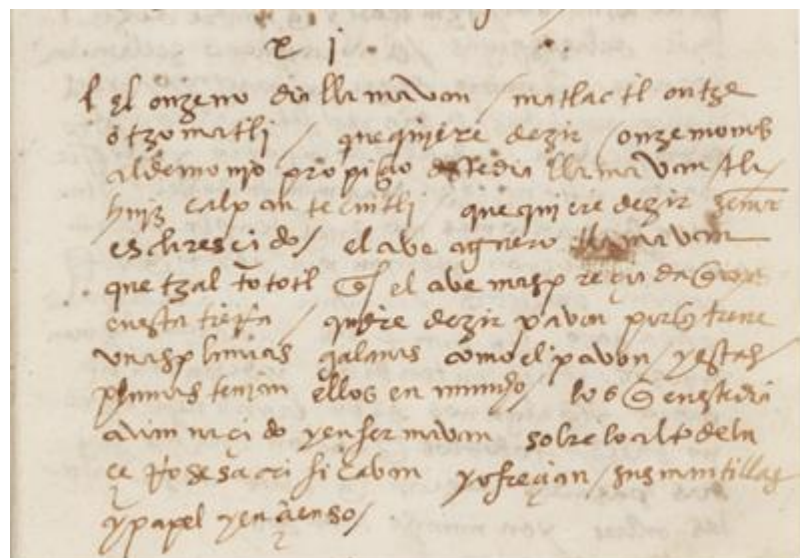 x i
el onzeno dia llamavan / matlactl ontze
otzomatli / que quiere dezir / onze monas
al demonio propiçio deste dia llamavan / tla /
huiz calpan tecuitli / que quiere dezir señor
esclaresçido / el ave aguero llamavan
quetzal tototl q̃ es el ave mas preçiada q̃
en esta trẽ / quiere dezir pavon porq̃ tiene
unas plumas galanas como el pavon / y estas
plumas tenian ellos en mucho / los q̃ en este dia
avian naçido y enfermavan sobre lo alto dela
se sacrificavan y ofreçian / sus mantillas
y papel y ençienso /